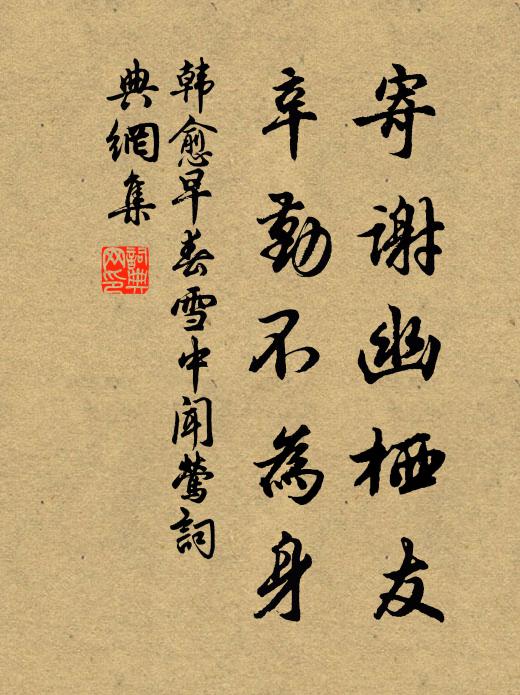 寄谢幽栖友
辛勤不為身
韩愈早春雪中闻莺詞
典網集
詞典
网印